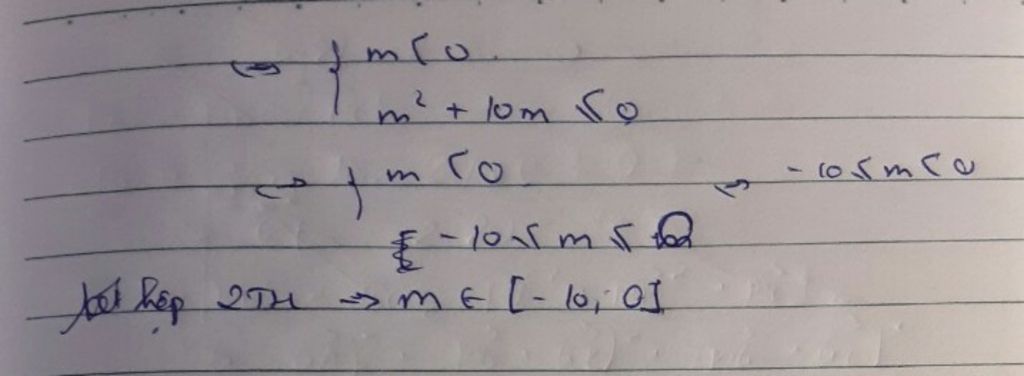 ⇔ { m < 0.
m² + 10m ≤ 0
⇔ { m < 0 ⇔ -10 ≤ m < 0
-10 ≤ m ≤ 0
kết hợp 2TH → m ∈ [-10; 0]